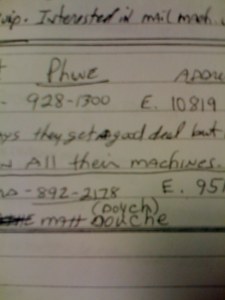 uip. Interested in mail mach.
Phwe ADDR
- 928-1300 E. 10819
ays they get a good deal but
N All their machines.
- 892-2178 E. 951
(DOUCH)
MATT DOUCHE